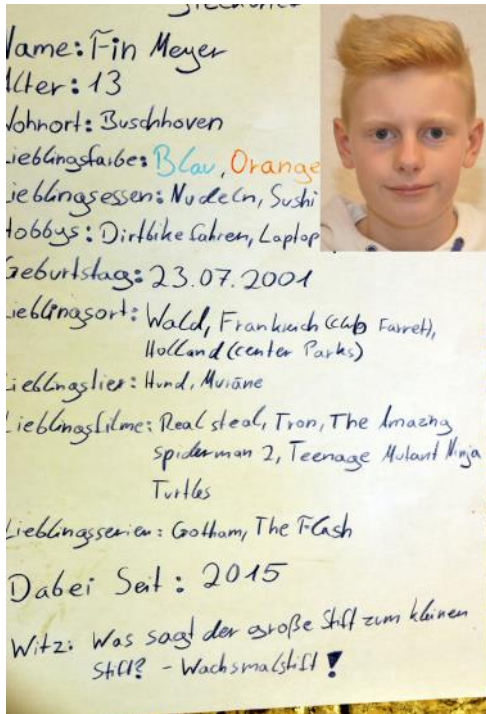 Name: Fin Meyer
Alter: 13
Wohnort: Buschhoven
Lieblingsfarbe: Blau, Orange
Lieblingsessen: Nudeln, Sushi
Hobbys: Dirtbike fahren, Laptop
Geburtstag: 23.07.2001
Lieblingsort: Wald, Frankreich (club Farret),
Holland (center Parks)
Lieblingstier: Hund, Muräne
Lieblingsfilme: Real steal, Tron, The Amazing
spiderman 2, Teenage Mutant Ninja
Turtles
Lieblingsserien: Gotham, The Flash
Dabei Seit: 2015
Witz: Was sagt der große Stift zum kleinen
Stift? - Wachsmalstift!